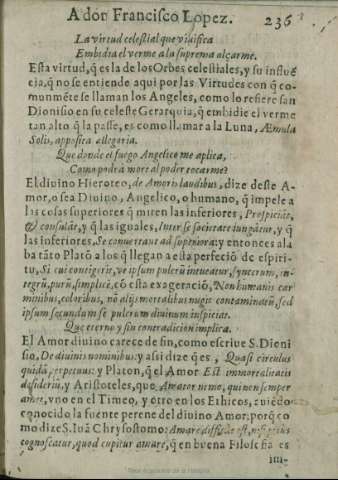 A don Francisco Lopez. 236
La virtud celestial que viuifica
Embidia el verme a la suprema alçarme.
Esta virtud, q̃ es la de los Orbes celestiales, y su influẽ
cia, q̃ no se entiende aqui por las Virtudes con q̃ co-
munmẽte se llaman los Angeles, como lo refiere san
Dionisio en su celeste Gerarquia, q̃ embidie el verme
tan alto q̃ la passe, es como llamar a la Luna, Æmula
Solis, apposita allegoria.
Que donde el fuego Angelico me aplica,
Como podrà mortal poder tocarme?
El diuino Hieroteo, de Amoris laudibus, dize deste A-
mor, o sea Diuino, Angelico, o humano, q̃ impele a
las cosas superiores q̃ miren las inferiores, Prospiciãt,
& consulãt, y q̃ las iguales, Inter se societate iungãtur, y q̃
las inferiores, Se conuertant ad superiora: y entonces ala
ba tãto Platõ a los q̃ llegan a esta perfeciõ de espiri-
tu, Si cui contigerit, ve ipsum pulcrũ intueatur, syncerum, in-
tegrũ, purũ, simplicẽ, cõ esta exageraciõ, Non humanis car
minibus, coloribus, nõ alijs mortalibus nugis contaminatũ, sed
ipsum secundum se pulcrum diuinum inspiciat.
Que eterno y sin contradicion implica.
El Amor diuino carece de fin, como escriue S. Dioni
sio, De diuinis nominibus: y assi dize q̃ es, Quasi circulus
quidã, perpetuus: y Platon, q̃ el Amor Est immortalitatis
desideriũ, y Aristoteles, que Amator nime, qui non semper
amet, vno en el Timeo, y otro en los Ethicos, auiẽdo
conocido la fuente perene del diuino Amor: porq̃ co
mo dize S. Iuã Chrysostomo: Amare difficile est, nisi prius
cognoscatur, quod cupitur amare, q̃ en buena Filosofia es
im-
Real Academia de la Historia